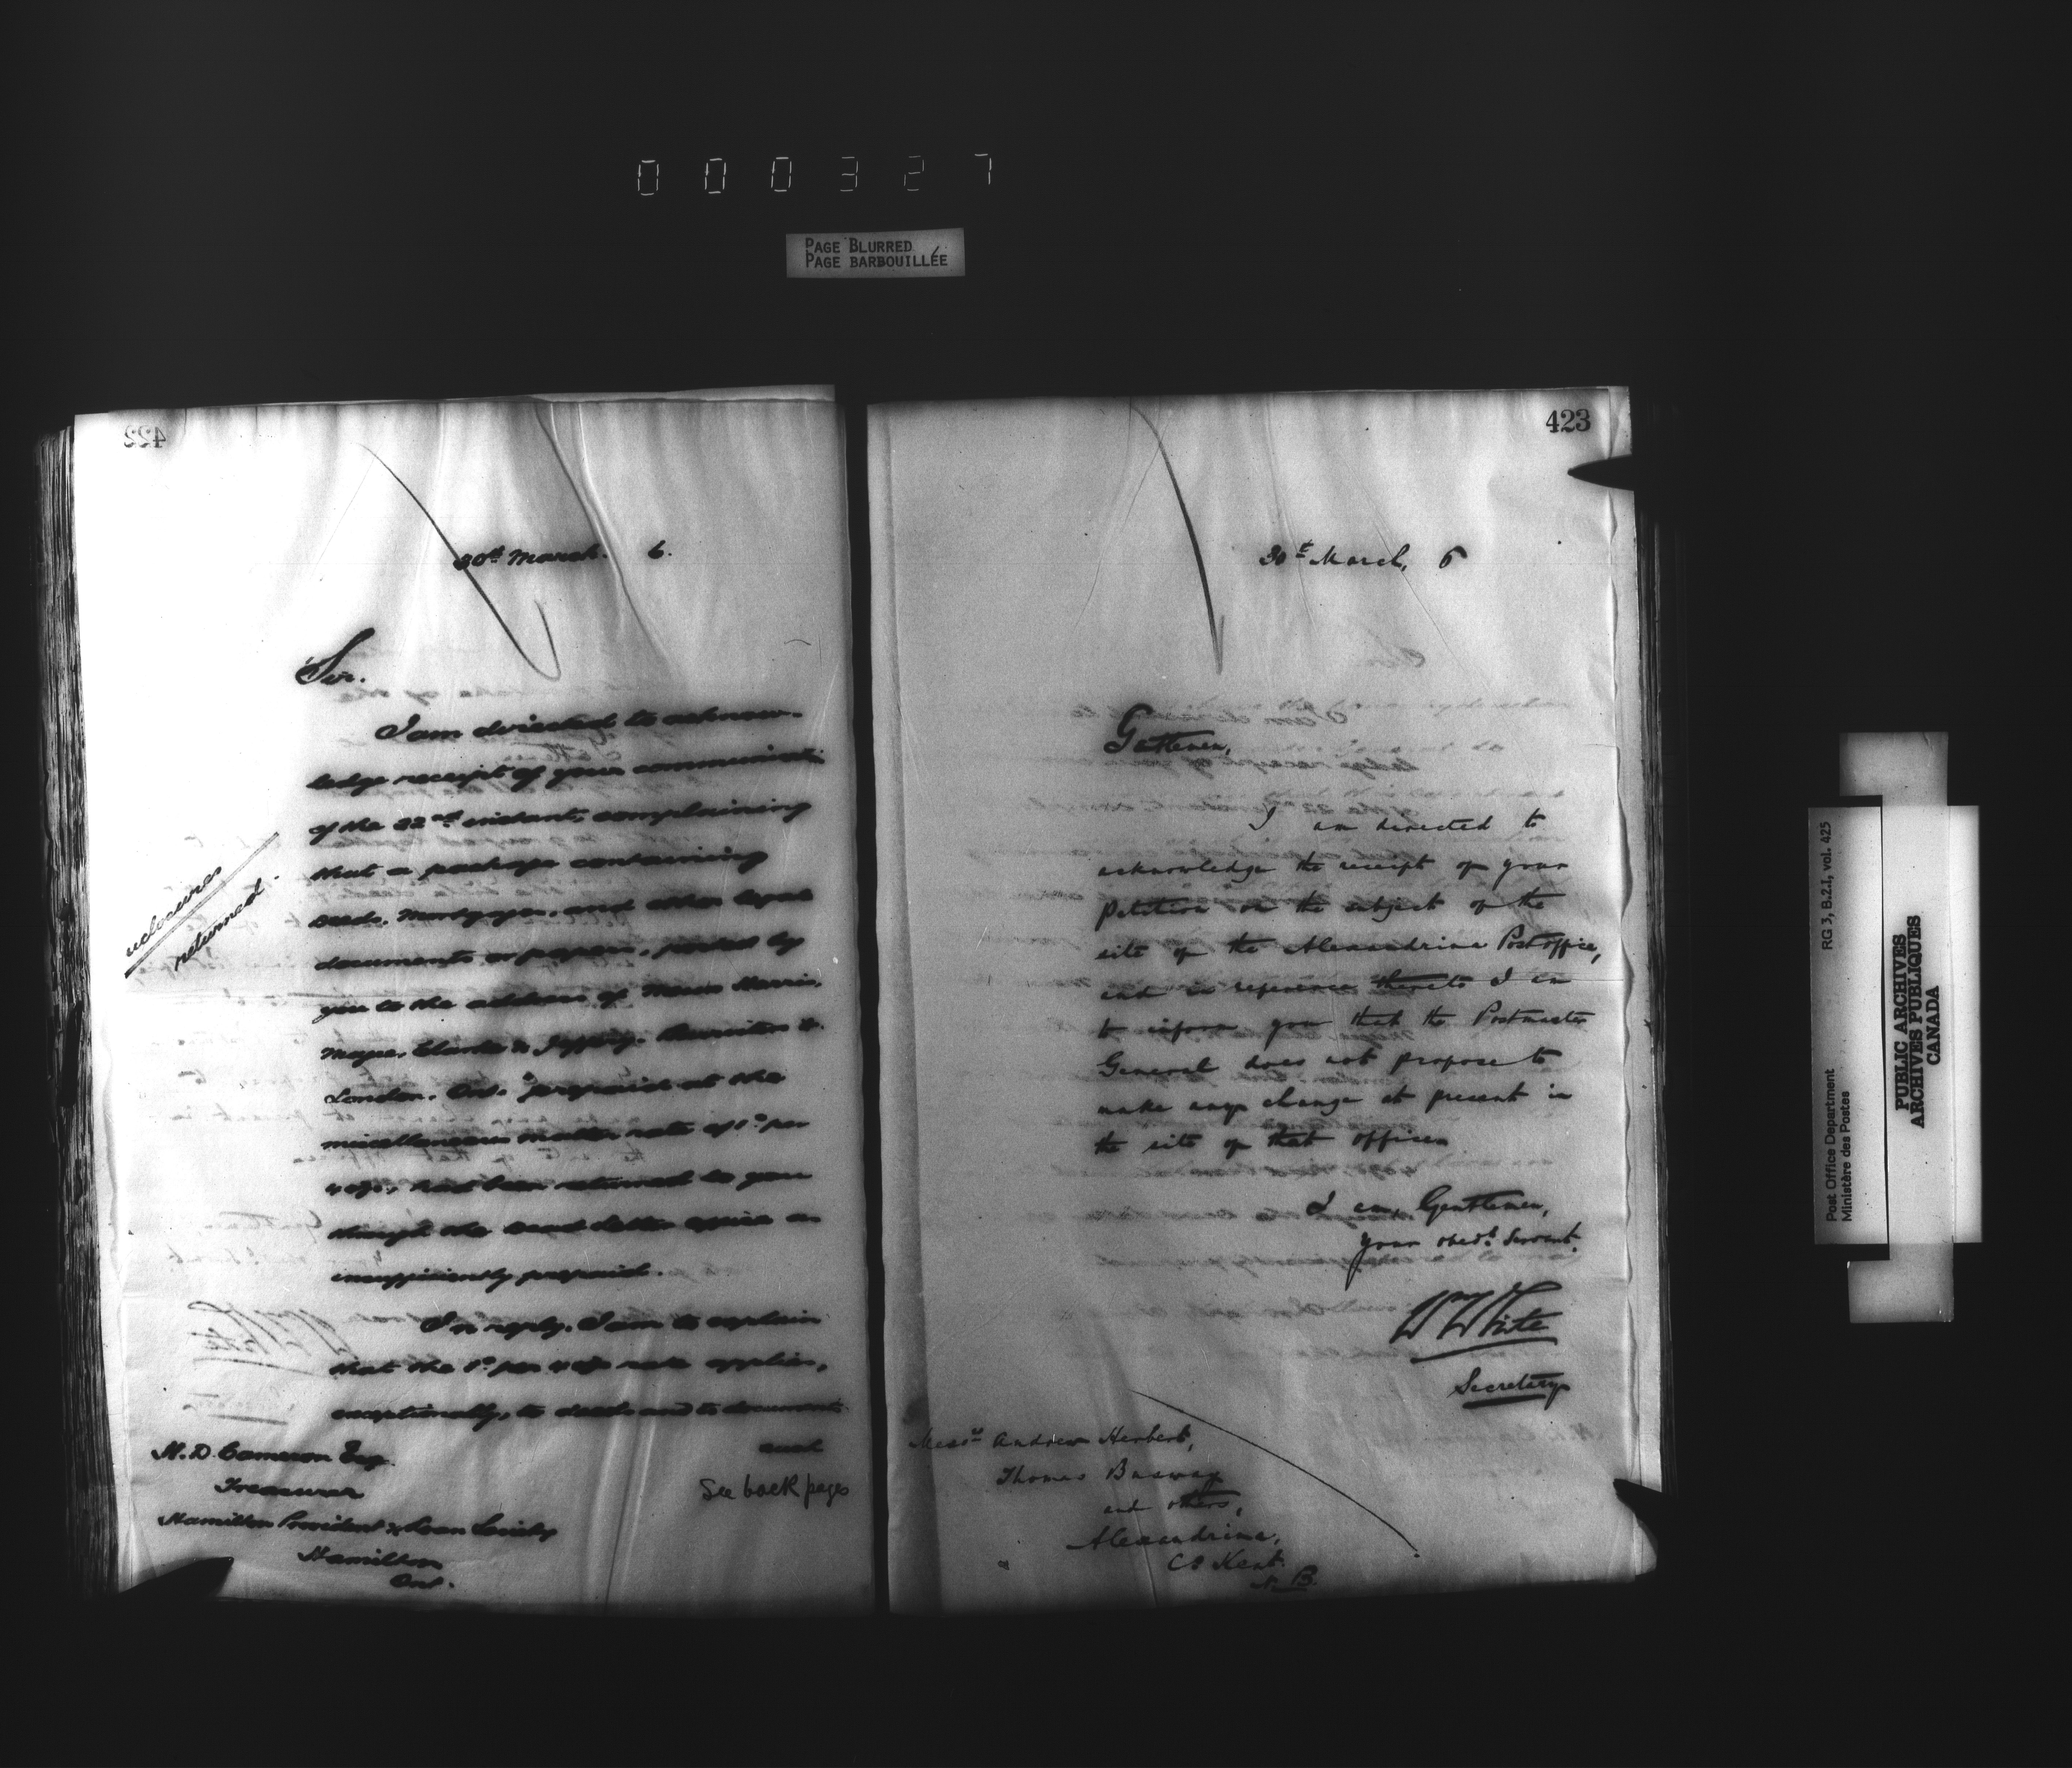 000327
PAGE BLURRED
PAGE BARBOUILLÉE
422
30th March. 6.
Sir.
I am directed to acknow-
ledge receipt of your communicati
of the 22nd instant, complaining
that a package containing
Deeds, Mortgages, and other legal
documents or papers, posted by
you to the address of Messrs Harris,
Magee, Clarke & Jeffery, Barristers &c.
London, Ont. prepaid at the
miscellaneous matter rate of 1c per
4 ozs, had been returned to you
through the Dead Letter Office as
insufficiently prepaid.
In reply, I am to explain
that the 1c per 4 ozs rate applies,
exceptionally, to deeds and to documents
and
See back pages
nclosures
returned.
H. D. Cameron Esq
Treasurer
Hamilton Provident & Loan Society
Hamilton
Ont.
423
30th March, 6
Gentlemen,
I am directed to
acknowledge the receipt of your
Petition on the subject of the
site of the Alexandrina Post office,
and in reference thereto I am
to inform you that the Postmaster
General does not propose to
make any change at present in
the site of that office.
I am, Gentlemen,
Your obedt. Servant.
Wm White
Secretary
Messrs Andrew Herbert,
Thomas
and others,
Alexandrina,
Co Kent.
N. B.
Post Office Department RG 3, B.2.1, vol. 425
Ministère des Postes
PUBLIC ARCHIVES
ARCHIVES PUBLIQUES
CANADA